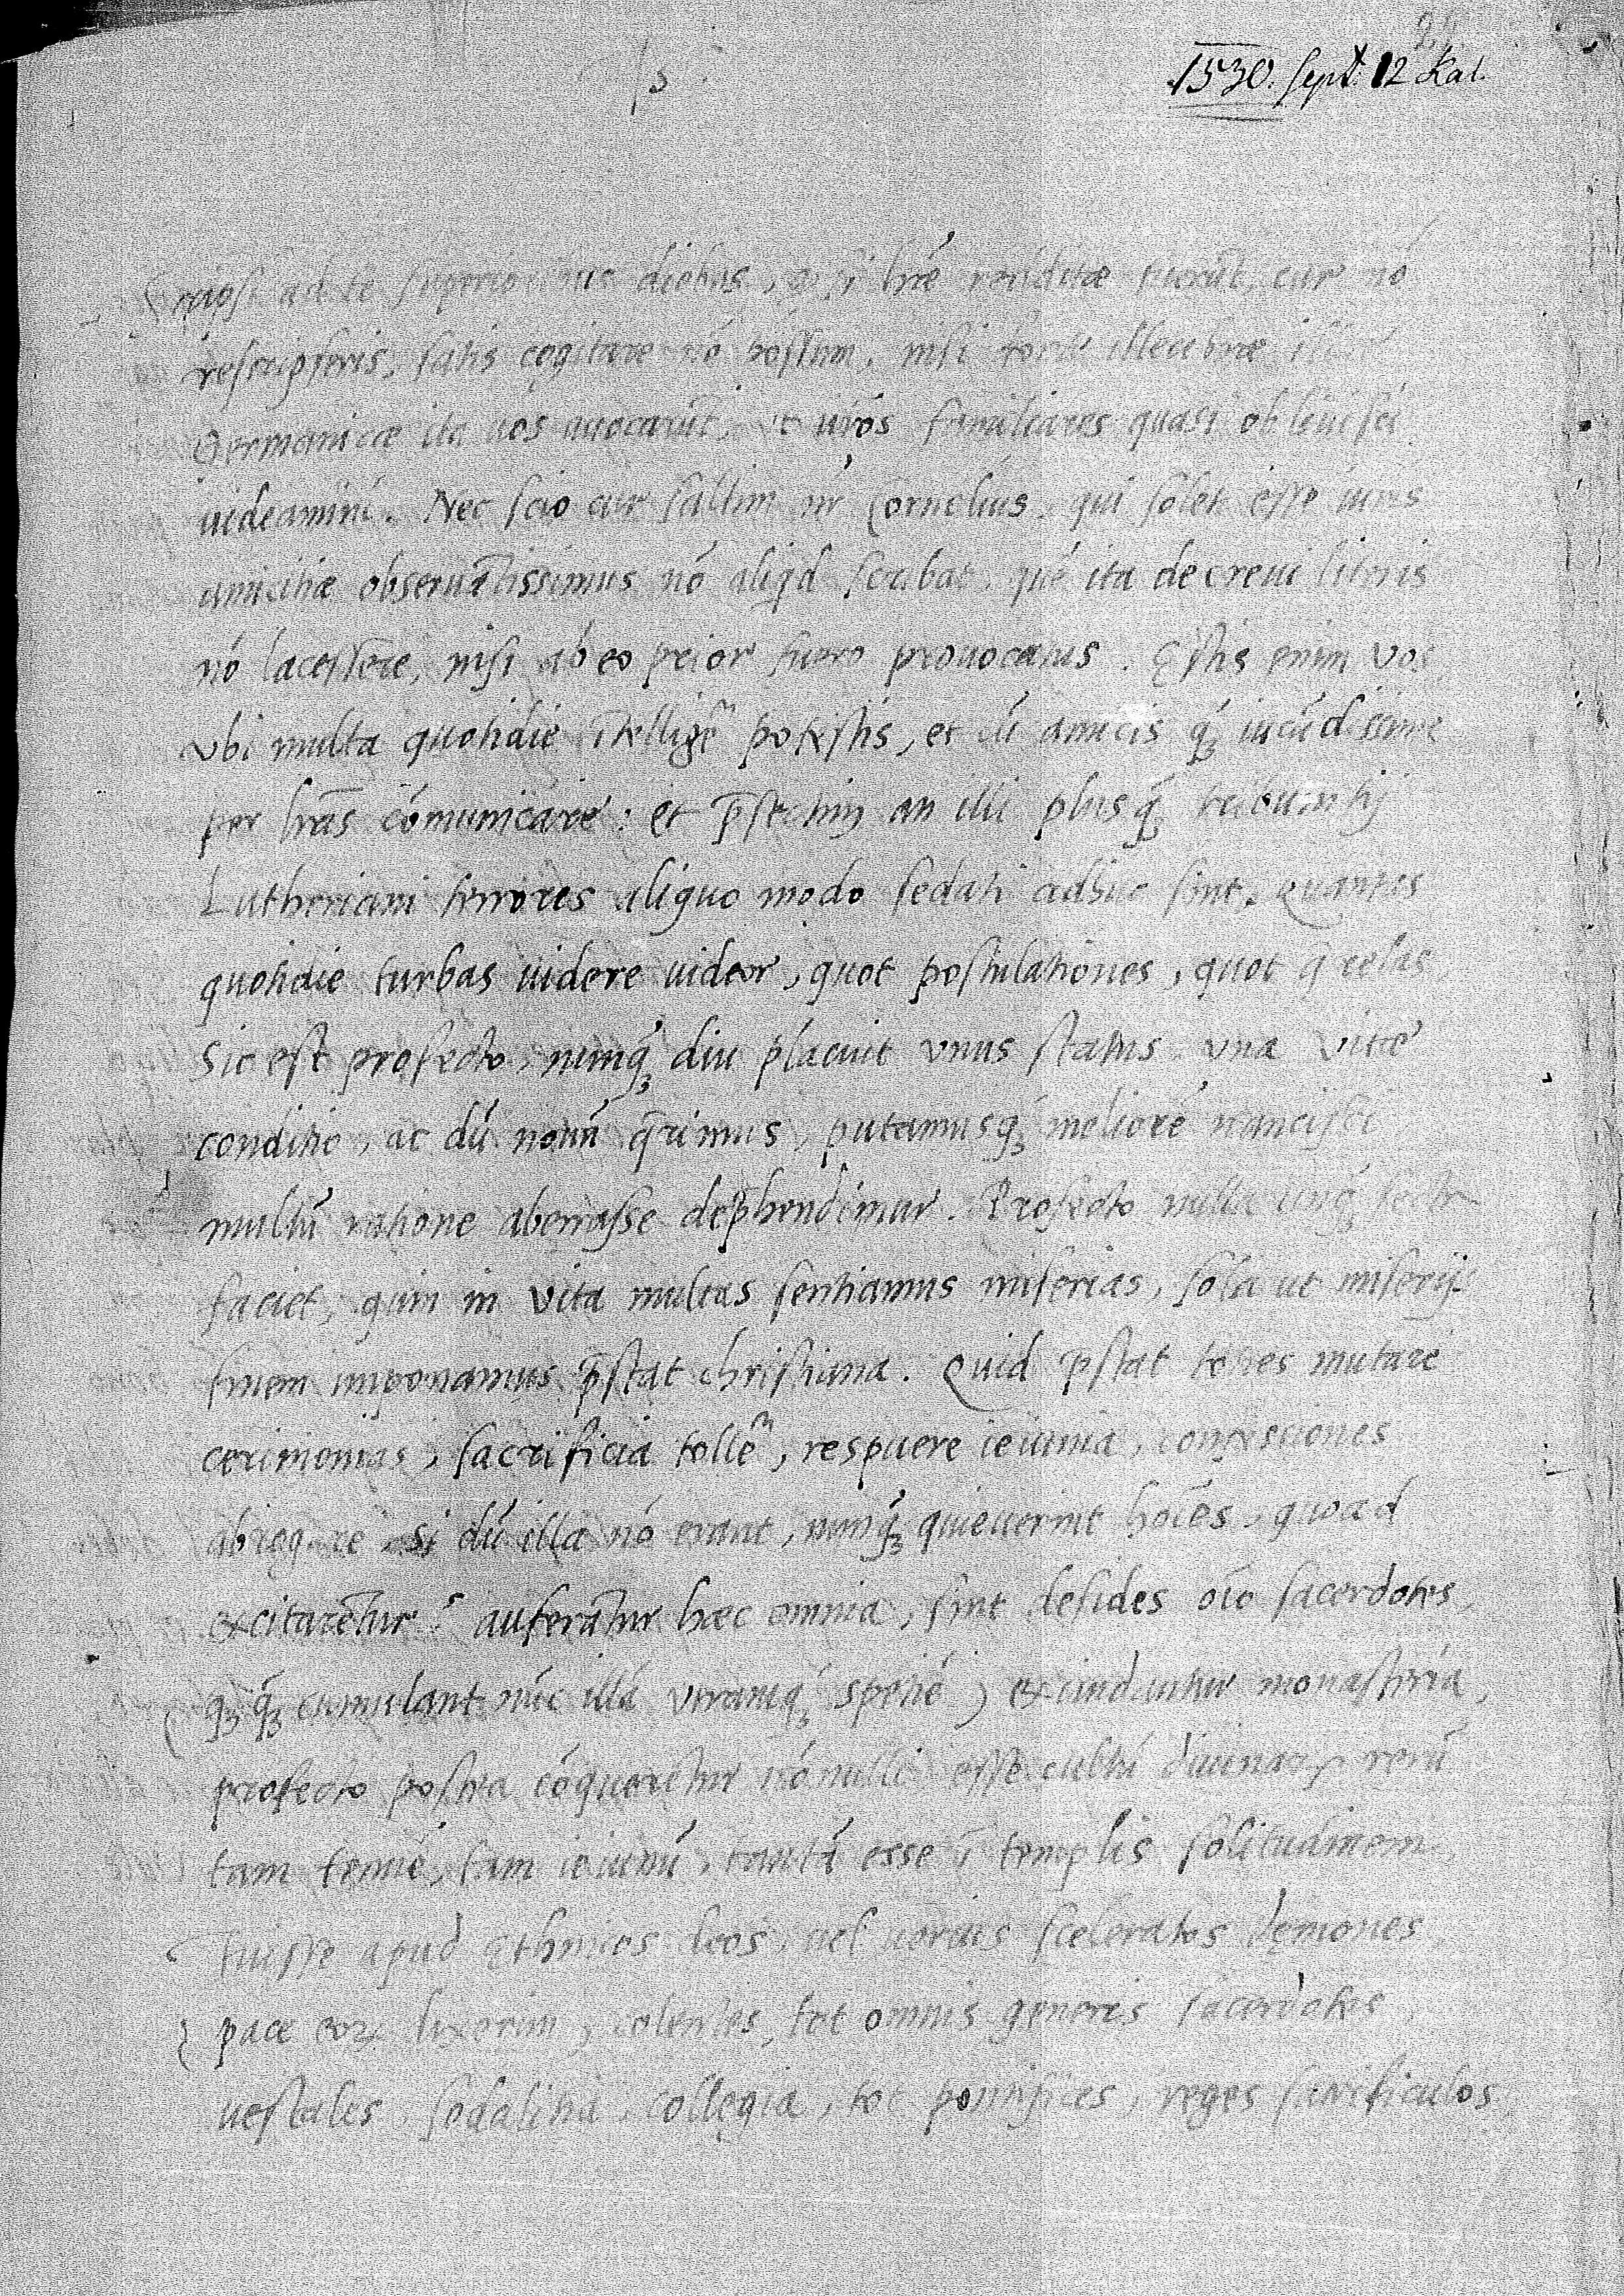 1530. Sept. 12 Kal.
Scripsi ad te superioribus diebus, q̃ si lrẽ redditæ fuerũt, cur nõ
rescripseris, satis cogitare nõ possum, nisi forte illecebræ
Germanicæ ita uos auocarũt, ut uros familiares quasi obliuisci
uideamini. Nec scio cur saltim nr̃ Cornelius, qui solet esse iuris
amicitiæ obseruãtissimus nõ aliqd scribat, quẽ ita decreui literis
nõ lacessere, nisi ab eo prior fuero prouocatus. Estis enim vos
vbi multa quotidie ĩtelligẽ potestis, et cũ amicis q̃ʒ iucũdissime
per lrãs cõmunicare: et p̃sertim an illi plusq̃ tribunitij
Lutheriani furores aliquo modo sedati adhuc sint. Quantas
quotidie turbas uidere uideor, quot postulationes, quot q̃relas
Sic est profecto, nunq̃ʒ diu placuit vnus status, vna vitæ
conditio, ac dũ nouũ q̃rimus, putamusqʒ meliorẽ nancisci
multũ ratione aberrasse dep̃hendimur. Profecto nulla unq̃ʒ
faciet, quin in vita multas sentiamus miserias, sola ut miserijs
finem imponamus p̃stat christiana. Quid p̃stat toties mutare
cerimonias, sacrificia tollẽ, respuere ieiunia, confessiones
abrogare si dũ illa nõ erant, nunq̃ʒ quieuerint hoĩes, quoad
excitarẽtur? auferãtur hæc omnia, sint desides oĩo sacerdotes,
(qʒq̃ʒ cumulant nũc illã vtramqʒ spetiẽ) excindantur monasteria,
profecto postea cõquerẽtur nõnulli esse cultũ diuinarꝝ rerũ
tam tenuẽ, tam ieiunũ, tantã esse ĩ templis solitudinem,
fuisse apud Ethnicos deos, uel uerius sceleratos dęmones
pace eorꝝ dixerim, colentes, tot omnis generis sacerdotes,
uestales, sodalitia, collegia, tot pontifices, reges sacrificulos,